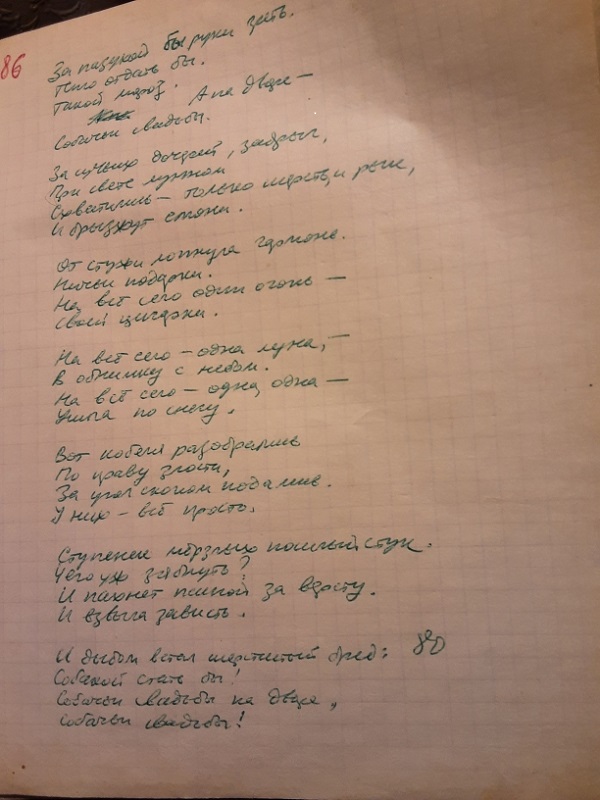 86
За пазухой бы руки греть.
Тепло отдать бы.
Такой мороз.
А на дворе —
Собачьи свадьбы.
За сучьих дочерей, забрыл,
При свете лунном
Схватились — только шерсть, и рыки,
И брызжут слюни.
От стужи лопнула гармонь.
Ничьи подарки.
На всё село один огонь —
Своей цигарки.
На всё село — одна луна, —
В обнимку с небом.
На всё село — одна, одна —
Ушла по снегу.
Вот кобели разобрались
По праву злости,
За угол скопом подались.
У них — всё просто.
Ступенек мёрзлых пошлый стук.
Чего уж зябнуть?
И пахнет псиной за версту.
И взвыла зависть.
И дыбом встал шерстистый бред:
80
Собакой стать бы!
Собачьи свадьбы на дворе,
Собачьи свадьбы!